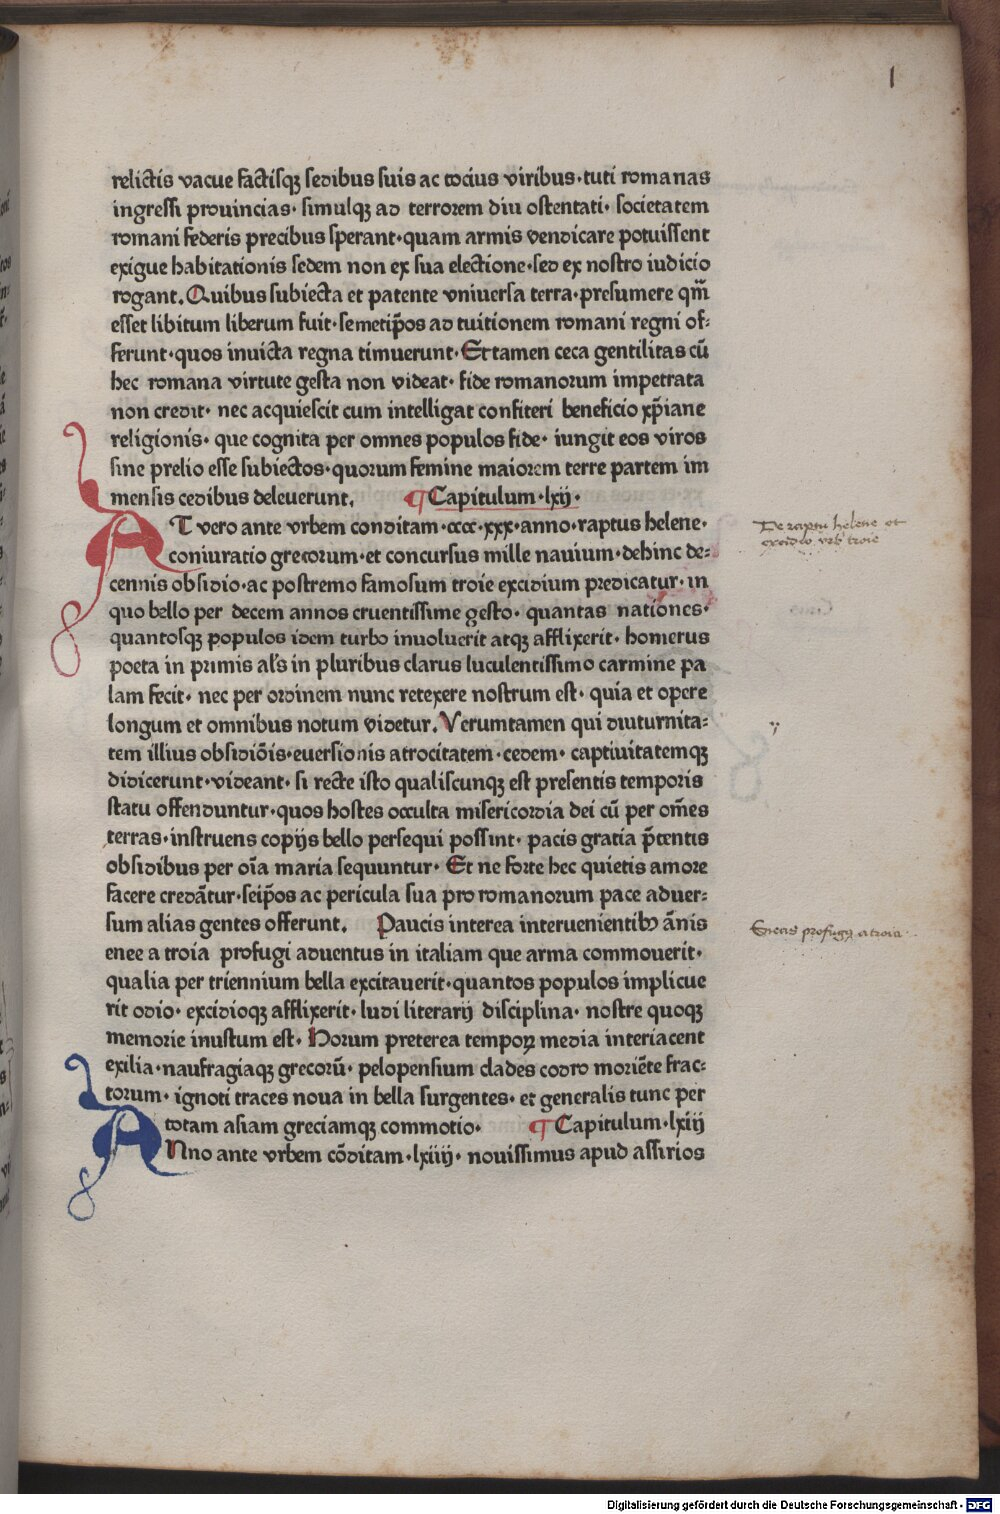 1
relictis vacue factisqꝫ sedibus suis ac tocius viribus·tuti romanas
ingressi prouincias· simulqꝫ ad terrorem diu ostentati· societatem
romani federis precibus sperant·quam armis vendicare potuissent
exigue habitationis sedem non ex sua electione·sed ex nostro iudicio
rogant. Quibus subiecta et patente vniuersa terra·presumere qm̄
esset libitum liberum fuit·semetip̄os ad tuitionem romani regni of⸗
ferunt·quos inuicta regna timuerunt·Et tamen ceca gentilitas cū
hec romana virtute gesta non videat· fide romanorum impetrata
non credit· nec acquiescit cum intelligat confiteri beneficio xp̄iane
religionis· que cognita per omnes populos fide· iungit eos viros
sine prelio esse subiectos·quorum femine maiorem terre partem im
mensis cedibus deleuerunt. ¶Capitulum·lxij·
AT vero ante vrbem conditam·cccc·xxx·anno·raptus helene·
coniuratio grecorum·et concursus mille nauium·dehinc de⸗
cennis obsidio·ac postremo famosum troie excidium predicatur·in
quo bello per decem annos cruentissime gesto· quantas nationes·
quantosqꝫ populos idem turbo inuoluerit atqꝫ afflixerit· homerus
poeta in primis al's in pluribus clarus luculentissimo carmine pa
lam fecit· nec per ordinem nunc retexere nostrum est· quia et opere
longum et omnibus notum videtur. Verumtamen qui diuturnita⸗
tem illius obsidiōis·euersionis atrocitatem·cedem· captiuitatemqꝫ
didicerunt·videant· si recte isto qualiscunqꝫ est presentis temporis
statu offenduntur·quos hostes occulta misericordia dei cū per om̄es
terras·instruens copijs bello persequi possint· pacis gratia p̄tentis
obsidibus per oīa maria sequuntur· Et ne forte hec quietis amore
facere credātur·seip̄os ac pericula sua pro romanorum pace aduer⸗
sum alias gentes offerunt. Paucis interea interuenientibꝰ ānis
enee a troia profugi aduentus in italiam que arma commouerit·
qualia per triennium bella excitauerit·quantos populos implicue
rit odio· excidioqꝫ afflixerit· ludi literarij disciplina· nostre quoqꝫ
memorie inustum est· Horum preterea tempoꝝ media interiacent
exilia·naufragiaqꝫ grecorū· pelopensium clades codro moriēte frac⸗
torum· ignoti traces noua in bella surgentes· et generalis tunc per
totam asiam greciamqꝫ commotio· ¶Capitulum·lxiij
ANno ante vrbem cōditam·lxiiij· nouissimus apud assirios
De raptu helene et
excidio vrbis troie
Eneas profugꝰ a troia
Digitalisierung gefördert durch die Deutsche Forschungsgemeinschaft - DFG